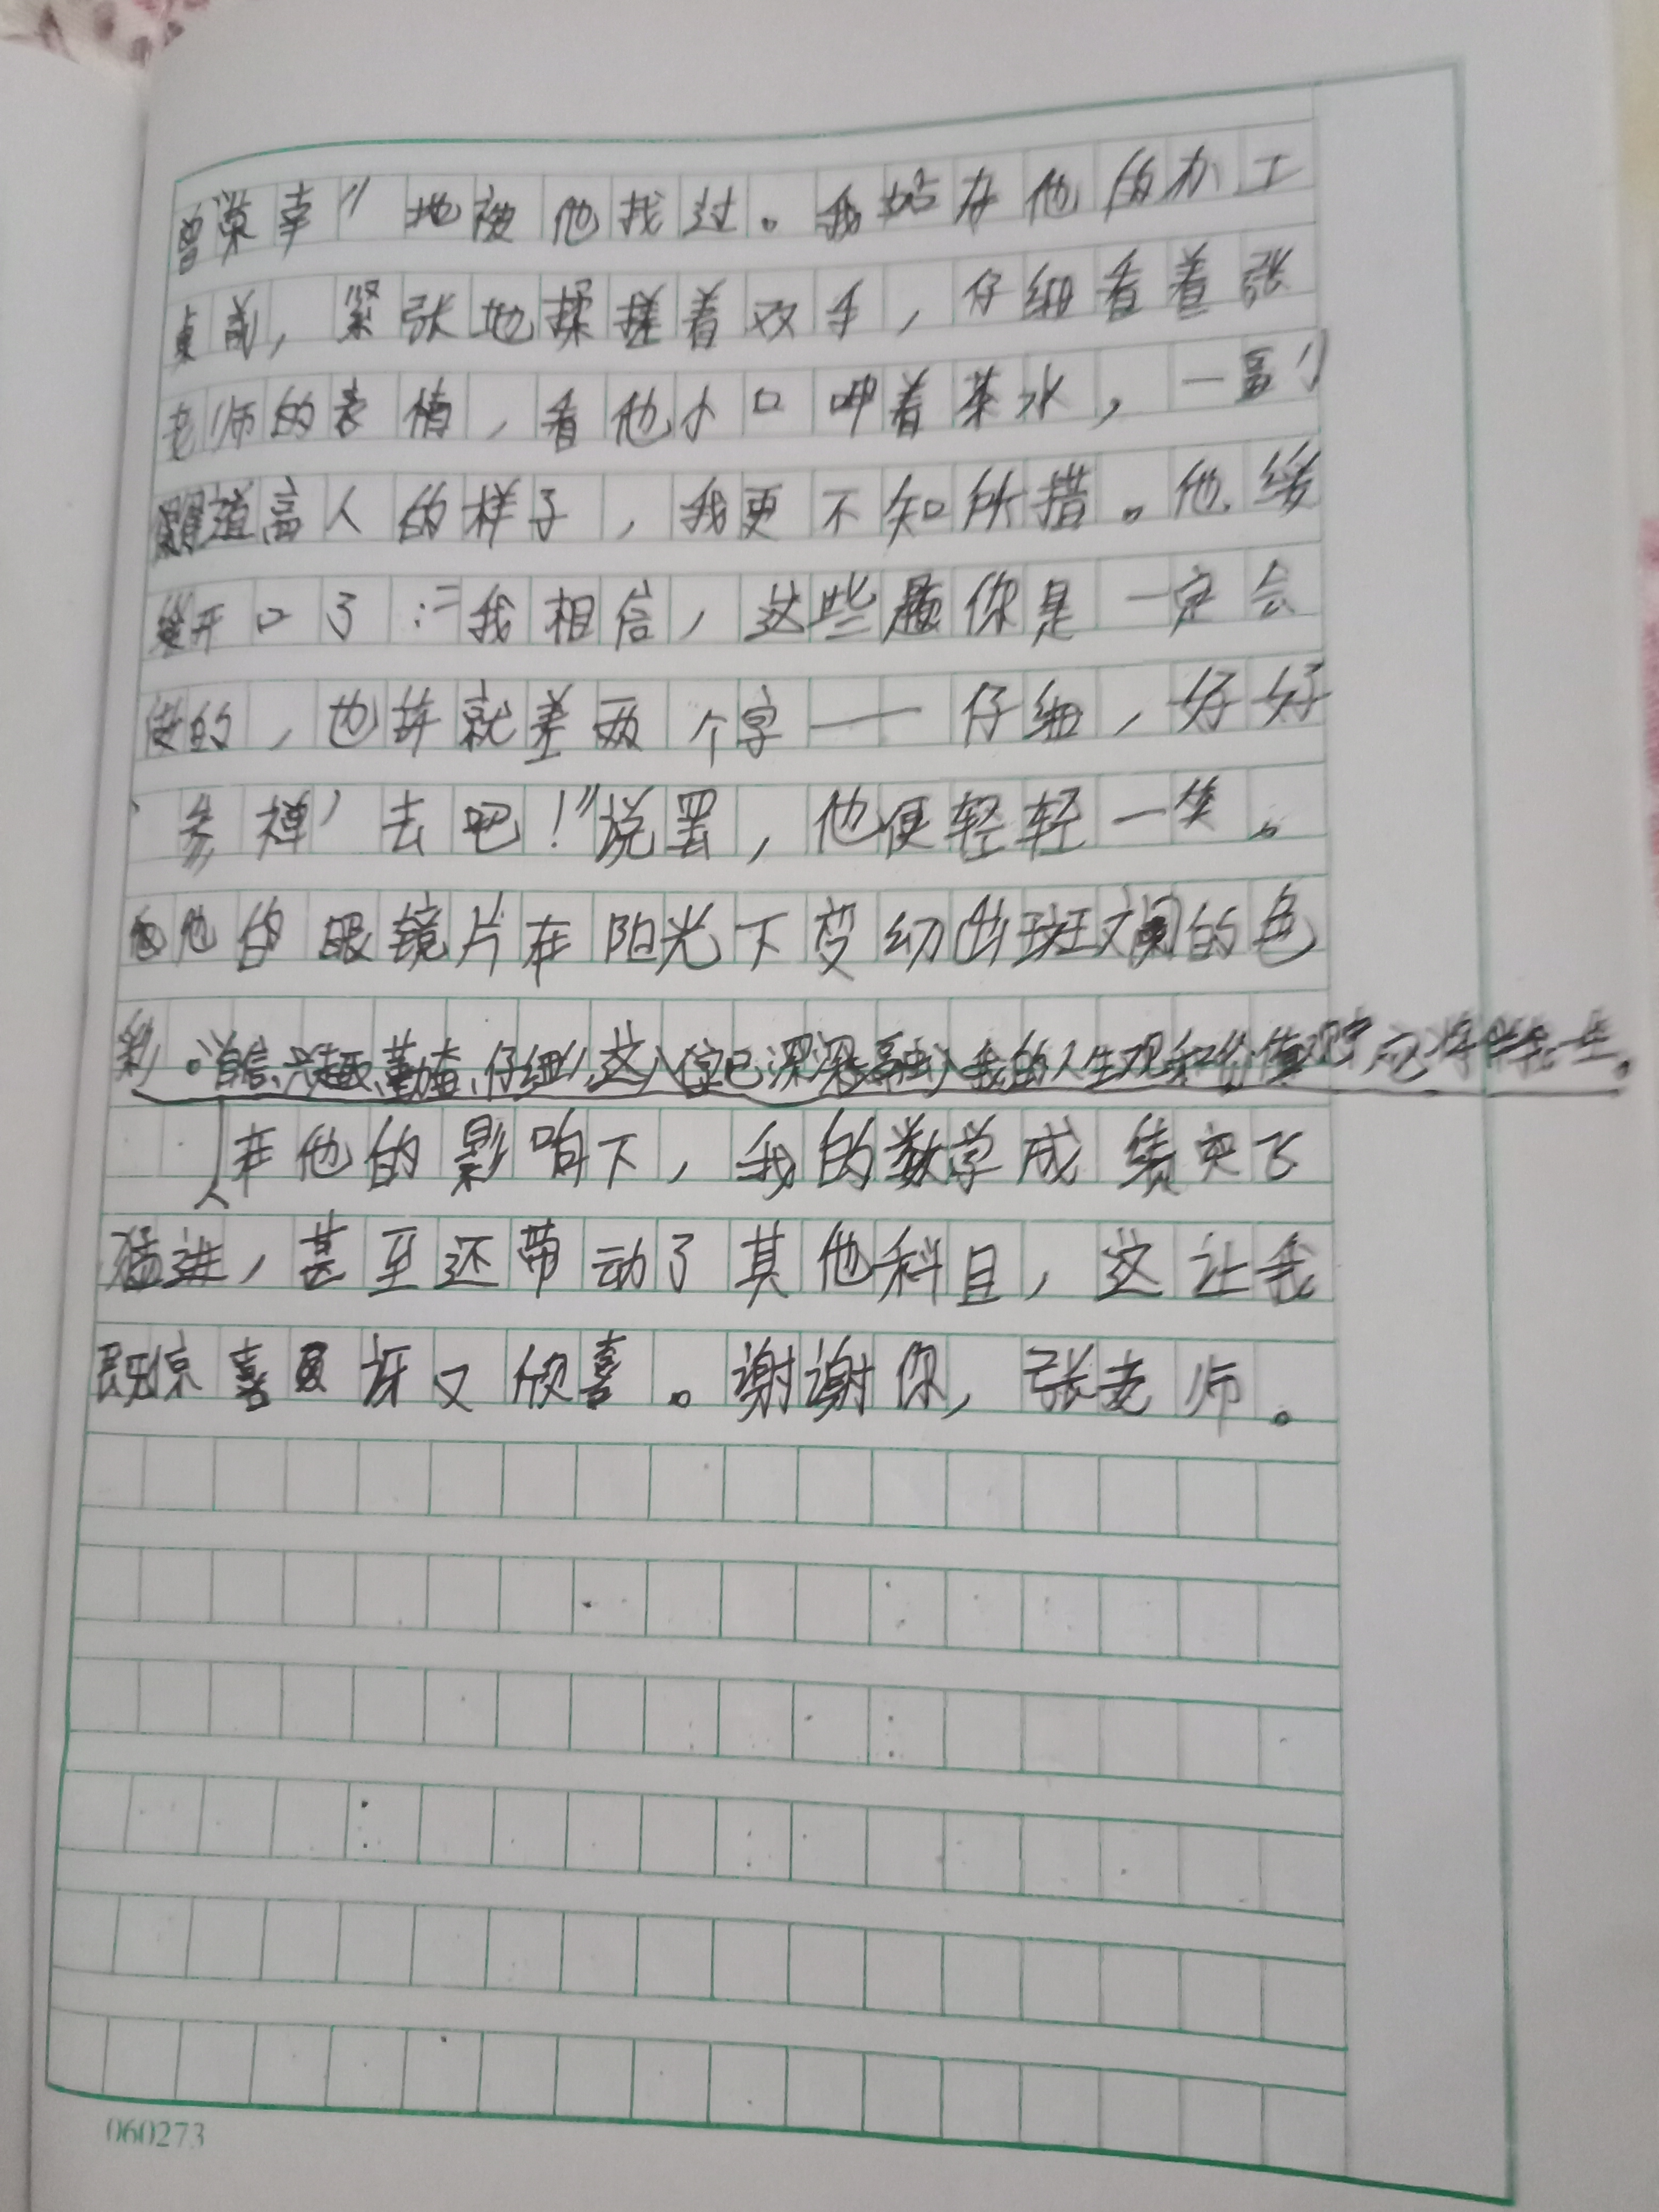 曾“荣幸”地被他找过。我站在他的办工
桌前，紧张地揉搓着双手，仔细看着张
老师的表情，看他小口呷着茶水，一副
道高人的样子，我更不知所措。他缓
缓开口了：“我相信，这些题你是一定会
做的，也许就差两个字——仔细，好好
‘参禅’去吧！”说罢，他便轻轻一笑。
他的眼镜片在阳光下变幻出斑斓的色
彩。自信、兴趣、勤奋、仔细，这八字已深深融入我的人生观和价值观，它将伴我一生。
在他的影响下，我的数学成绩突飞
猛进，甚至还带动了其他科目，这让我
既惊讶又欣喜。谢谢你，张老师。
060273